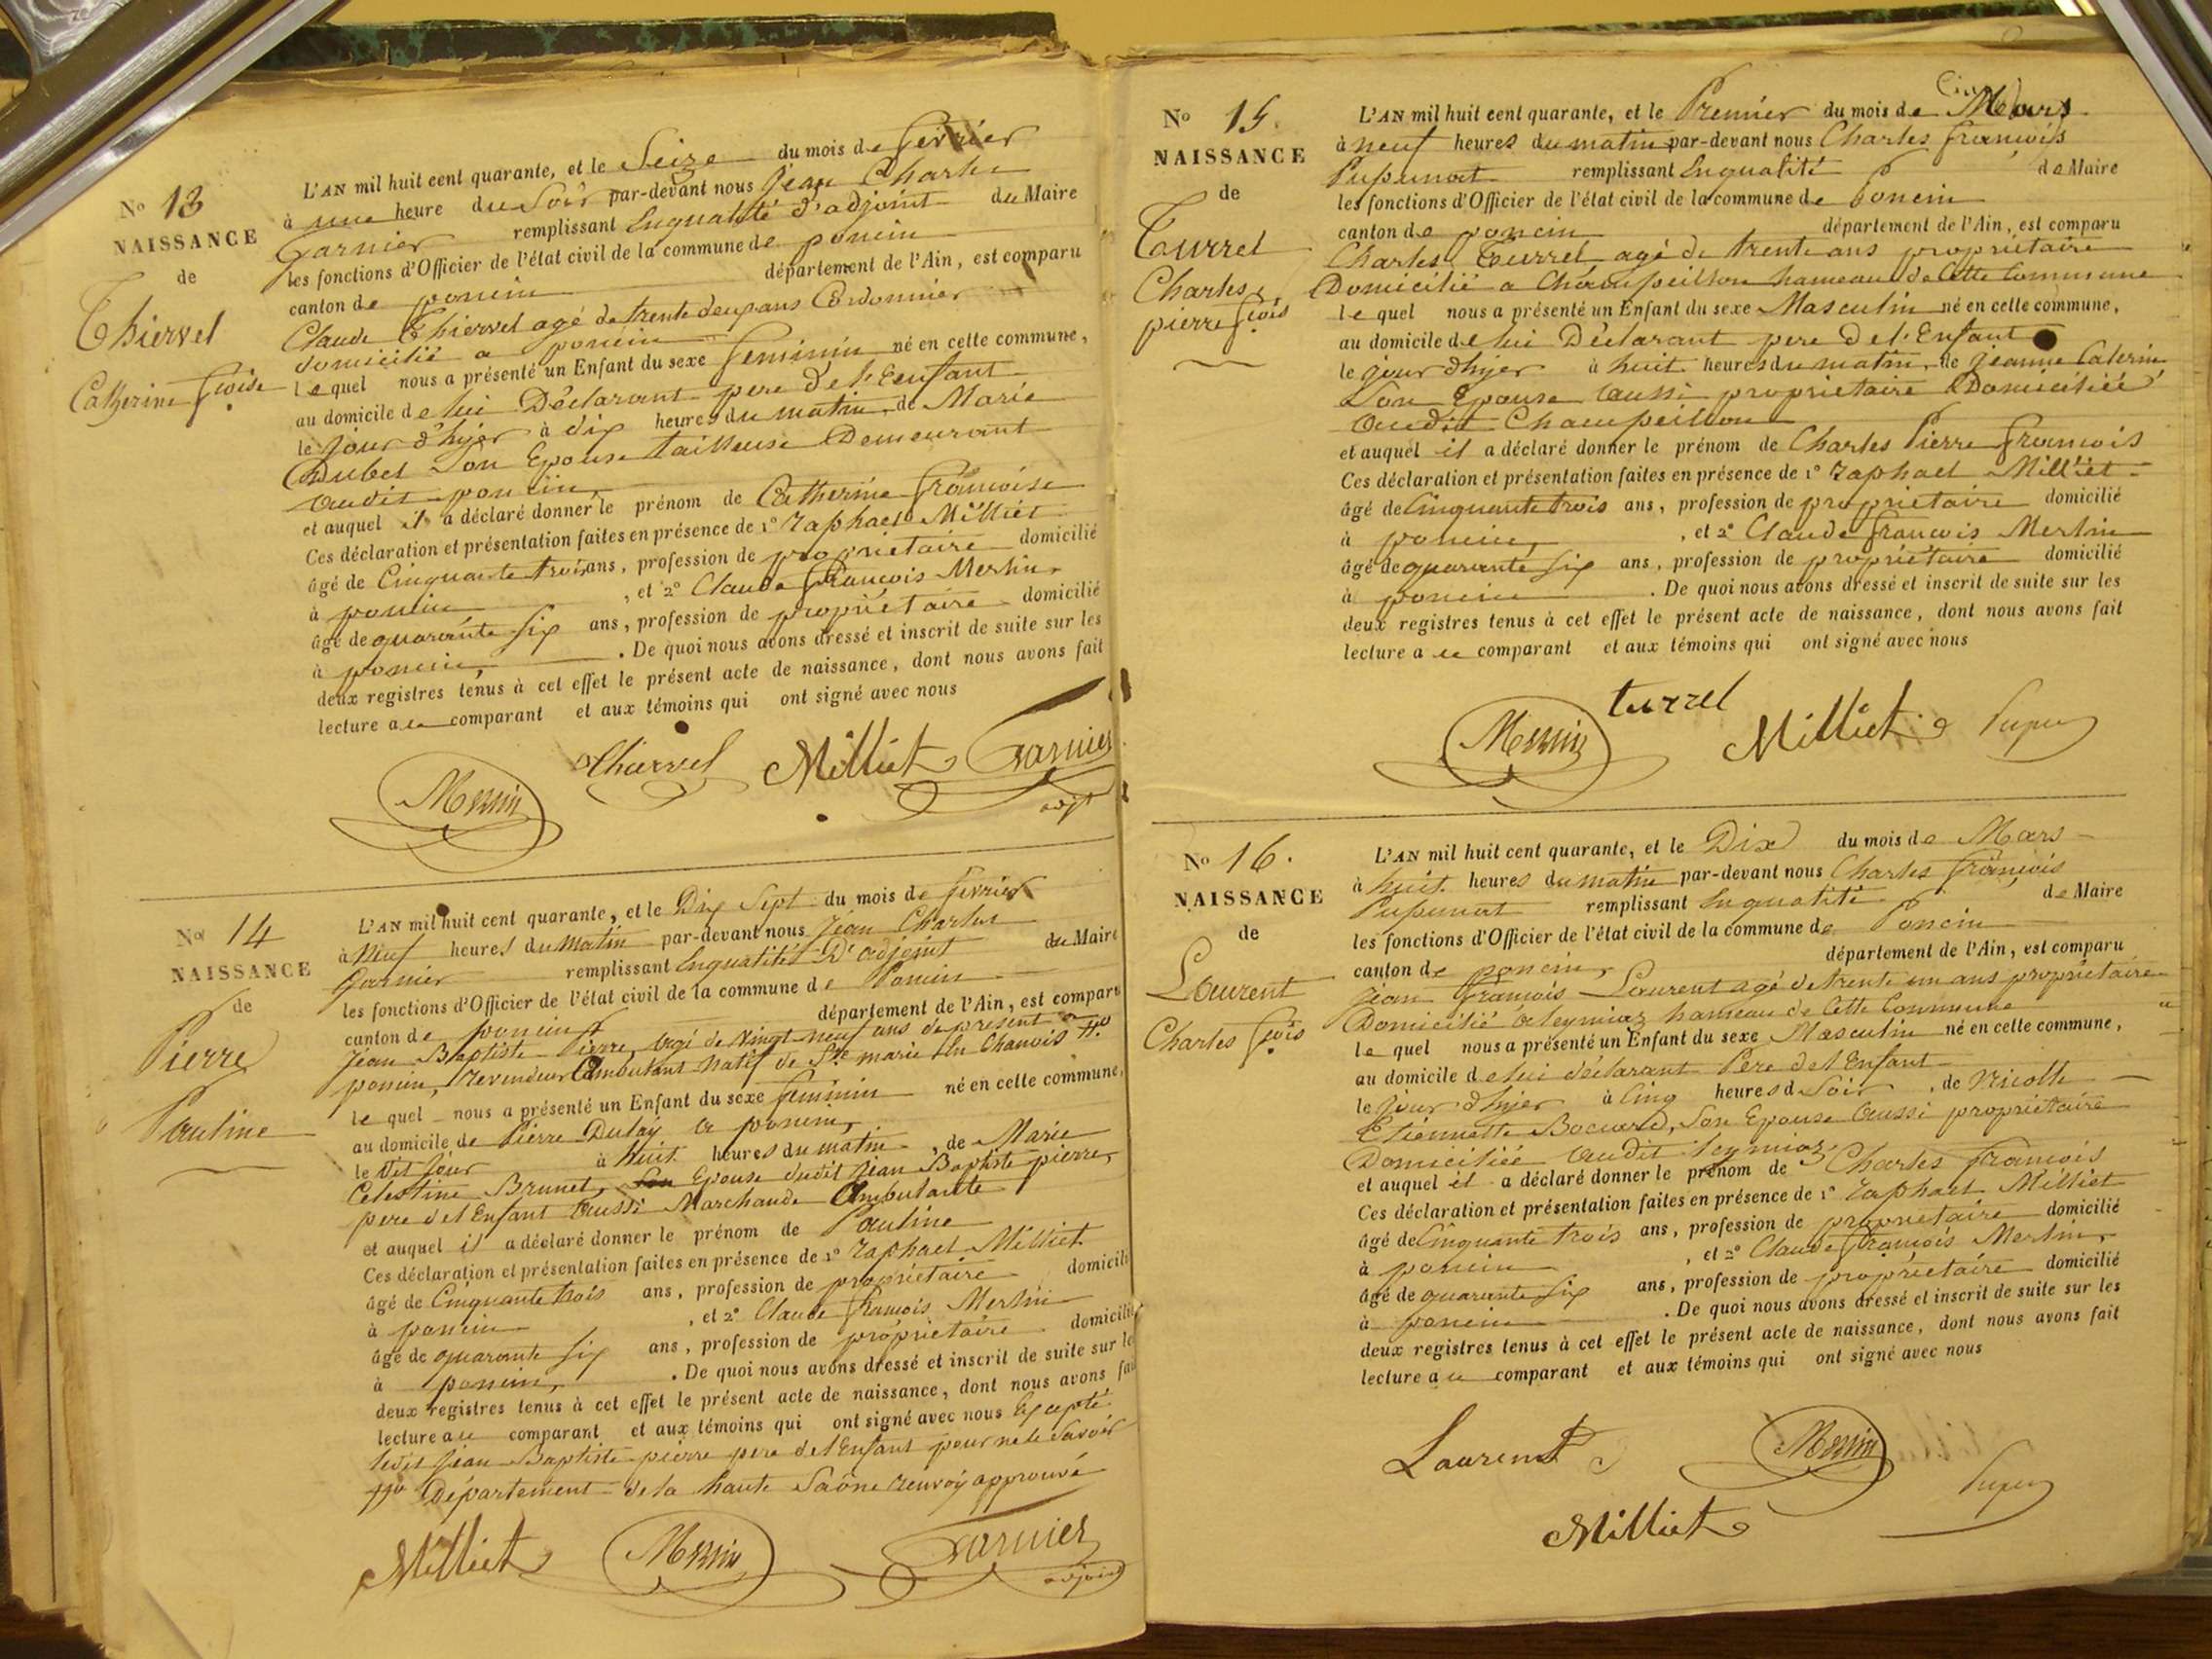 No 13
NAISSANCE
de
Thiervel
Catherine fçoise
L'AN mil huit cent quarante, et le Seize du mois de fevrier
à une heure du Soir par-devant nous jean Charles
Garnier remplissant Enqualité d'adjoint du Maire
les fonctions d'Officier de l'état civil de la commune de poncin
canton de poncin département de l'Ain, est comparu
Claude Thiervel agé de trente deux ans Cordonnier
domicilié a poncin
le quel nous a présenté un Enfant du sexe feminin né en cette commune,
au domicile de lui Déclarant pere de l'Enfant
le jour d'hyer à dix heures du matin, de Marie
Dubet Son Epouse tailleuse Demeurant
audit poncin,
et auquel il a déclaré donner le prénom de Catherine françoise
Ces déclaration et présentation faites en présence de 1º raphael Milliet
âgé de Cinquante trois ans, profession de propriétaire domicilié
à poncin , et 2º Claude françois Merlin,
âgé de quarante six ans, profession de propriétaire domicilié
à poncin, . De quoi nous avons dressé et inscrit de suite sur les
deux registres tenus à cet effet le présent acte de naissance, dont nous avons fait
lecture a ce comparant et aux témoins qui ont signé avec nous
Thiervel Milliet Garnier
Merlin adjt
No 14
NAISSANCE
de
Pierre
Pauline
L'AN mil huit cent quarante, et le Dix Sept du mois de fevrier
à Neuf heures du matin par-devant nous Jean Charles
Garnier remplissant Enqualité D'adjoint du Maire
les fonctions d'Officier de l'état civil de la commune de Poncin
canton de poncin département de l'Ain, est comparu
Jean Baptiste Pierre, agé de vingt neuf ans de present a
poncin, revendeur Ambulant natif de Ste marie En Chanois
le quel nous a présenté un Enfant du sexe feminin né en cette commune,
au domicile de Pierre Dulay a poncin,
le dit jour à huit heures du matin, de Marie
Celestine Brunet, Epouse dudit jean Baptiste pierre,
pere de l'Enfant aussi Marchande Ambulante
et auquel il a déclaré donner le prénom de Pauline
Ces déclaration et présentation faites en présence de 1º raphael Milliet
âgé de Cinquante trois ans, profession de propriétaire domicilié
à poncin , et 2º Claude françois Merlin
âgé de quarante six ans, profession de propriétaire domicilié
à poncin, . De quoi nous avons dressé et inscrit de suite sur les
deux registres tenus à cet effet le présent acte de naissance, dont nous avons fait
lecture a ce comparant et aux témoins qui ont signé avec nous Excepté
ledit jean Baptiste pierre pere de l'Enfant pour ne le Savoir
Département de la haute Saône renvoy approuvé
Milliet Merlin Garnier
adjoint
No 15.
NAISSANCE
de
Turrel
Charles,
pierre fçois
L'AN mil huit cent quarante, et le Premier du mois de Mars
à neuf heures du matin par-devant nous Charles françois
Pupunat remplissant Enqualité de Maire
les fonctions d'Officier de l'état civil de la commune de Poncin
canton de poncin département de l'Ain, est comparu
Charles Turrel agé de trente ans propriétaire
Domicilié a Champeillon hameau de Cette Commune
le quel nous a présenté un Enfant du sexe Masculin né en cette commune,
au domicile de lui Déclarant pere de l'Enfant
le jour d'hyer à huit heures du matin, de jeanne Caterin
Son Epouse aussi propriétaire Domiciliée
audit Champeillon
et auquel il a déclaré donner le prénom de Charles Pierre françois
Ces déclaration et présentation faites en présence de 1º raphael Milliet
âgé de Cinquante trois ans, profession de propriétaire domicilié
à poncin, , et 2º Claude françois Merlin
âgé de quarante six ans, profession de propriétaire domicilié
à poncin . De quoi nous avons dressé et inscrit de suite sur les
deux registres tenus à cet effet le présent acte de naissance, dont nous avons fait
lecture a ce comparant et aux témoins qui ont signé avec nous
turrel
Merlin Milliet Pupu
No 16.
NAISSANCE
de
Laurent
Charles fçois
L'AN mil huit cent quarante, et le Dix du mois de Mars
à huit heures du matin par-devant nous Charles françois
Pupunat remplissant Enqualité de Maire
les fonctions d'Officier de l'état civil de la commune de Poncin
canton de poncin, département de l'Ain, est comparu
jean françois Laurent agé de trente un ans propriétaire
Domicilié a leymiaz hameau de Cette Commune
le quel nous a présenté un Enfant du sexe Masculin né en cette commune,
au domicile de lui déclarant Pere de l'Enfant
le jour d'hyer à Cinq heures d Soir , de Nicolle
Etiennette Bocard, Son Epouse aussi propriétaire
Domiciliée audit leymiaz
et auquel il a déclaré donner le prénom de Charles françois
Ces déclaration et présentation faites en présence de 1º raphael Milliet
âgé de Cinquante trois ans, profession de propriétaire domicilié
à poncin , et 2º Claude françois Merlin,
âgé de quarante six ans, profession de propriétaire domicilié
à poncin . De quoi nous avons dressé et inscrit de suite sur les
deux registres tenus à cet effet le présent acte de naissance, dont nous avons fait
lecture a ce comparant et aux témoins qui ont signé avec nous
Laurent Merlin
Milliet Pupu